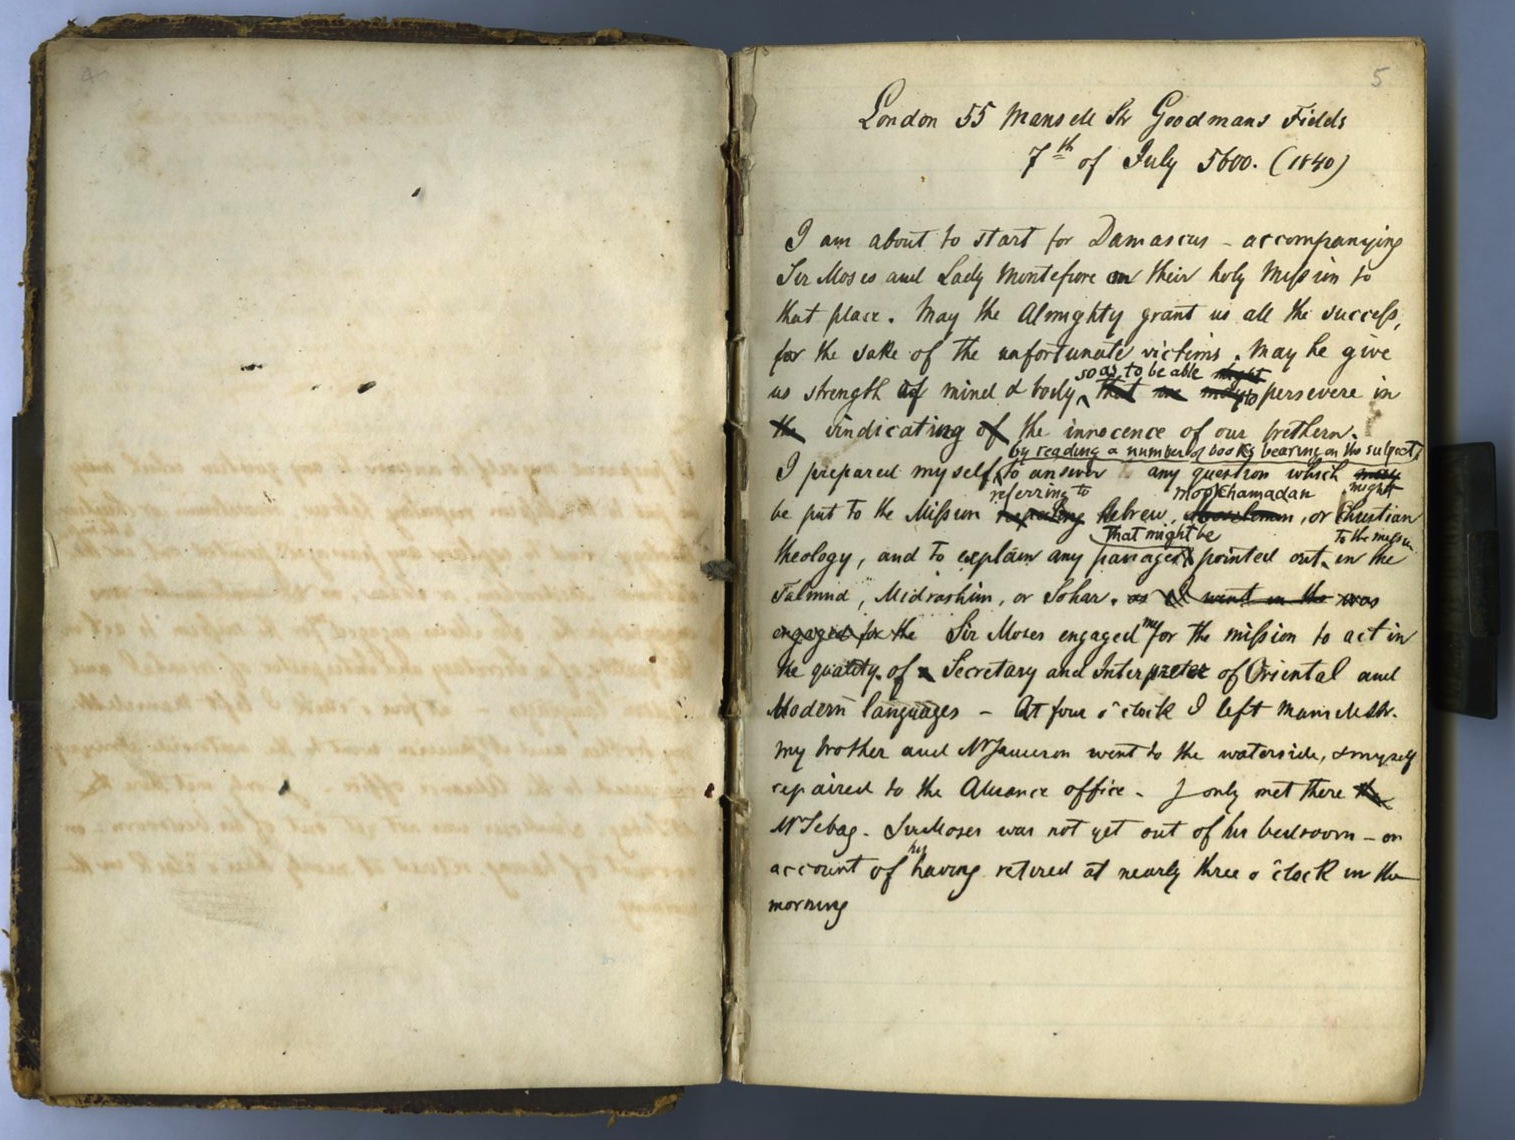 5
London 55 Mansell Str Goodmans Fields
7th of July 5600. (1840)
I am about to start for Damascus - accompanying
Sir Moses and Lady Montefiore on their holy Mission to
that place. May the Almighty grant us all the success,
for the sake of the unfortunate victims. May he give
so as to be able might
us strength of mind & body, that we may to persevere in
the vindicating of the innocence of our brethern.
by reading a number of books bearing on the subject,
I prepared myself to answer any question which may
referring to Mookhamadan might
be put to the Mission Hebrew, or Christian
that might be to the mission
theology, and to explain any passages pointed out in the
Talmud, Midrashim, or Sohar. as I went in the was
engaged for the Sir Moses engaged my for the mission to act in
the quality of a Secretary and Interpreter of Oriental and
Modern languages - At four o'clock I left Mansell Str.
my brother and Mr Jameson went to the waterside, & myself
repaired to the Aliance office - I only met there the
Mr Sebag. Sir Moses was not yet out of his bedroom - on
his
account of having retired at nearly three o'clock in the
morning